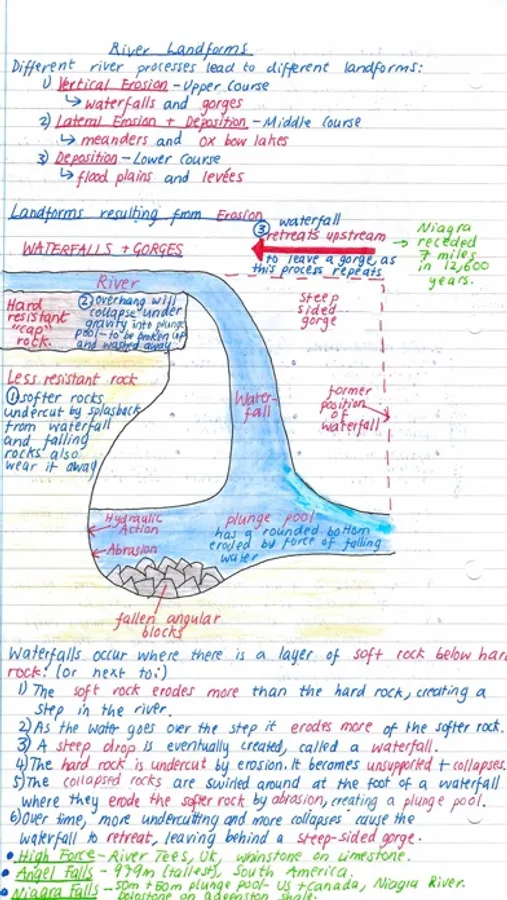 River Landforms
Different river processes lead to different landforms:
1) Vertical Erosion - Upper Course
↳ waterfalls and gorges
2) Lateral Erosion + Deposition - Middle Course
↳ meanders and ox bow lakes
3) Deposition - Lower Course
↳ flood plains and levées
Landforms resulting from Erosion
WATERFALLS + GORGES
③ waterfall
retreats upstream
to leave a gorge, as
this process repeats
→ Niagra
receded
7 miles
in 12,600
years.
River
Hard
resistant
"cap"
rock.
② overhang will
collapse under
gravity into plunge
pool - to be broken up
and washed away
Steep
sided
gorge
Less resistant rock
① softer rocks
undercut by splasback
from waterfall
and falling
rocks also
wear it away
Water-
fall
former
position
of
waterfall
Hydraulic
Action
Abrasion
plunge pool
has a rounded bottom
eroded by force of falling
water
fallen angular
blocks
Waterfalls occur where there is a layer of soft rock below hard
rock: (or next to:)
1) The soft rock erodes more than the hard rock, creating a
step in the river.
2) As the water goes over the step it erodes more of the softer rock.
3) A steep drop is eventually created, called a waterfall.
4) The hard rock is undercut by erosion. It becomes unsupported + collapses.
5) The collapsed rocks are swirled around at the foot of a waterfall
where they erode the softer rock by abrasion, creating a plunge pool.
6) Over time, more undercutting and more collapses cause the
waterfall to retreat, leaving behind a steep-sided gorge.
• High Force - River Tees, UK, whinstone on limestone.
• Angel Falls - 979m (tallest), South America.
• Niagra Falls - 50m + 50m plunge pool - US + Canada, Niagra River.
Dolostone on
shale.